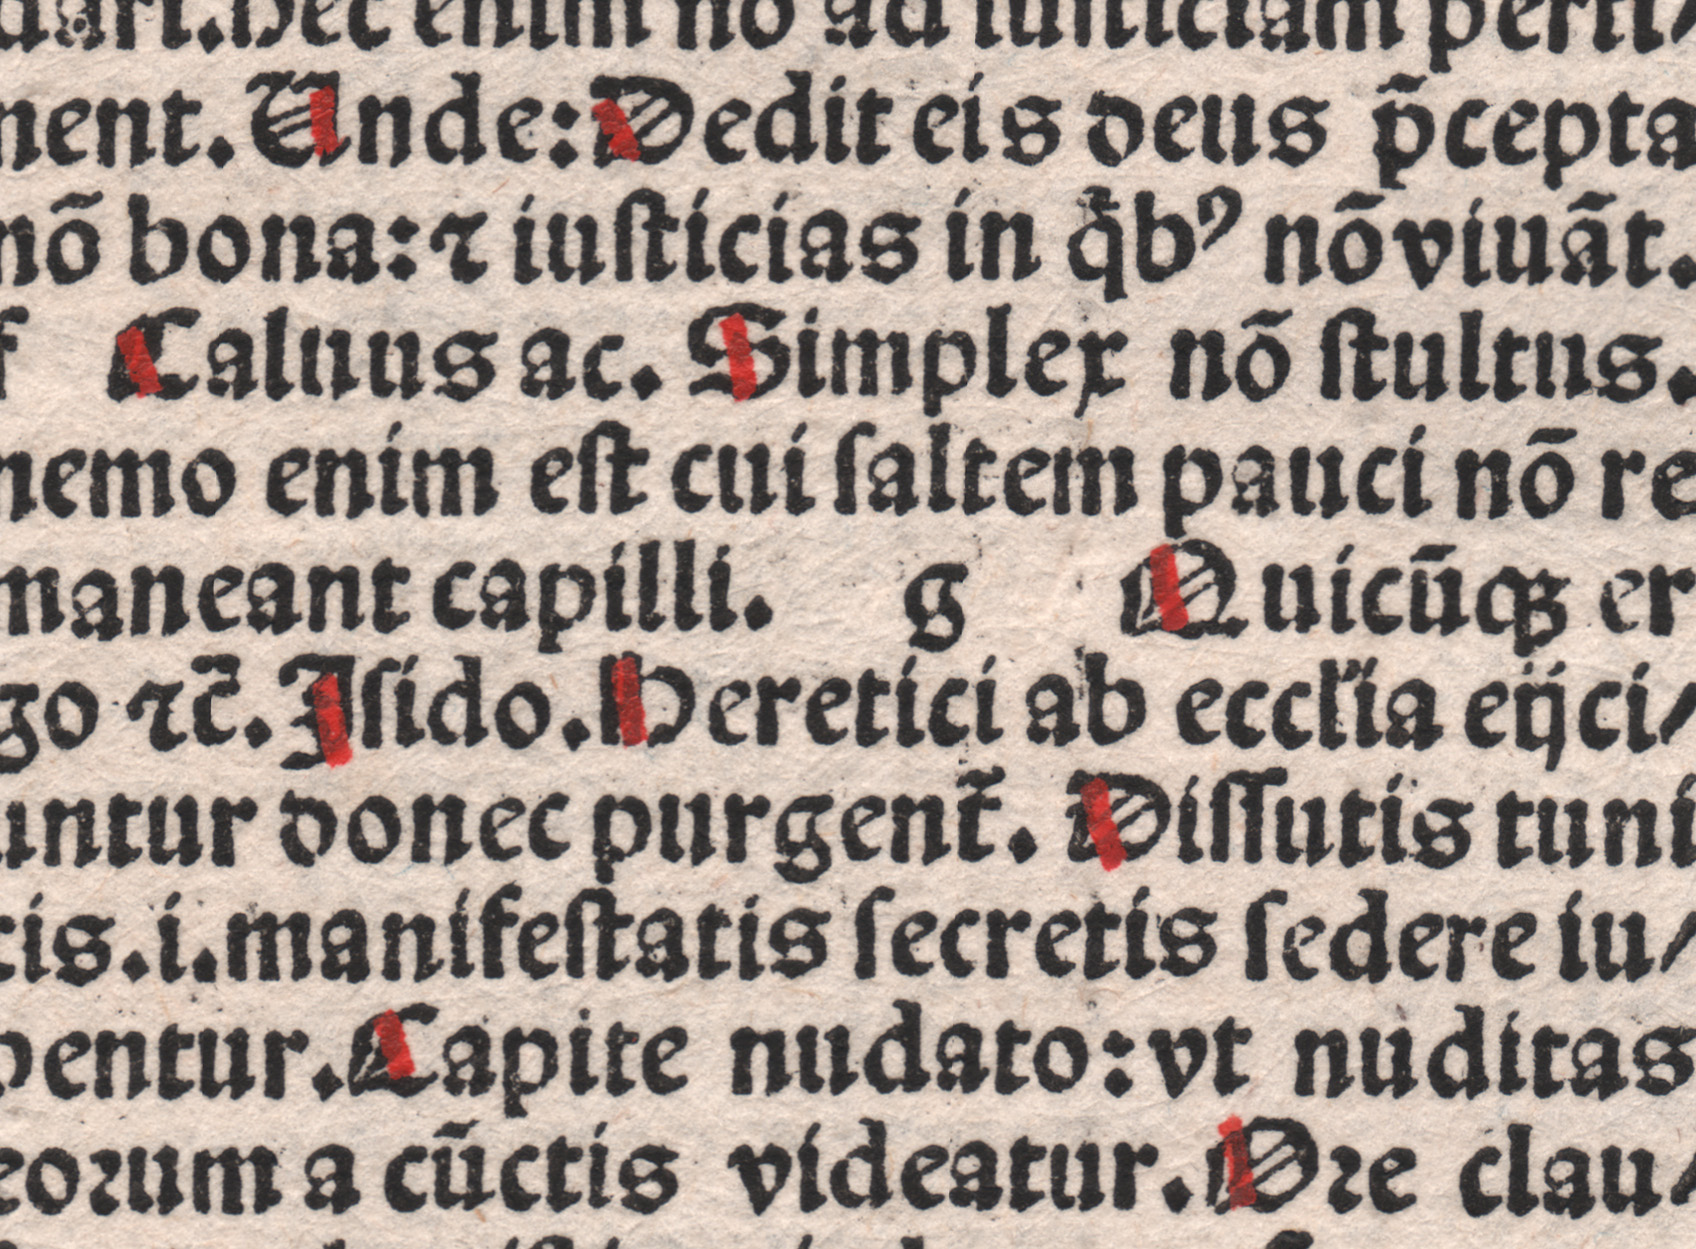 dari. Hec enim nõ ad iusticiam perti/
nent. Unde: Dedit eis deus p̃cepta
nõ bona: ⁊ iusticias in q̇bꝰ nõ viuãt.
f Caluus ac. Simplex nõ ſtultus.
nemo enim eſt cui ſaltem pauci nõ re
maneant capilli. g Quicũqꝫ er
go ⁊c̃. Iſido. Heretici ab eccl'ia eijci/
untur donec purgent᷑. Diſſutis tuni
cis. i. manifeſtatis ſecretis ſedere iu/
bentur. Capite nudato: vt nuditas
eoꝛum a cũctis videatur. Oꝛe clau/